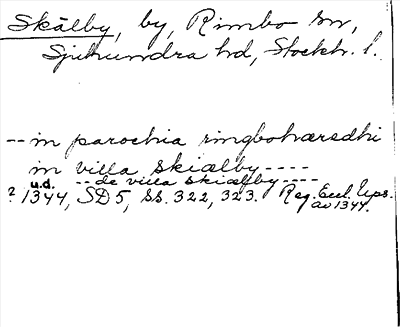 Skälby, by, Rimbo sn,
Sjuhundra hd, Stockh. l.
-- in parochia ringbohæredhi
in villa skiælby ----
u.d. -- de villa skiælfby ----
? 1344, SD 5, ss. 322, 323. Reg. Eccl. Ups.
av 1344.